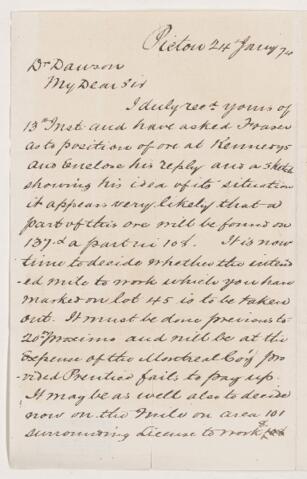 Pictou 24th Jany 74
Dr Dawson
My Dear Sir
I duly recd yours of
13th Inst and have asked Fraser
as to position of ore at Kennedys
and Enclose his reply and a sketch
showing his idea of its situation
it appears very likely that a
part of this ore will be found on
137 & a part in 108. It is now
time to decide whether the intend
ed mile to work which you have
marked on lot 45 is to be taken
out. It must be done previous to
20th proximo and will be at the
Expense of the Montreal Coy pro
vided Prentice fails to pay up
It may be as well also to decide
now on the Mile on area 101
surrounding License to work